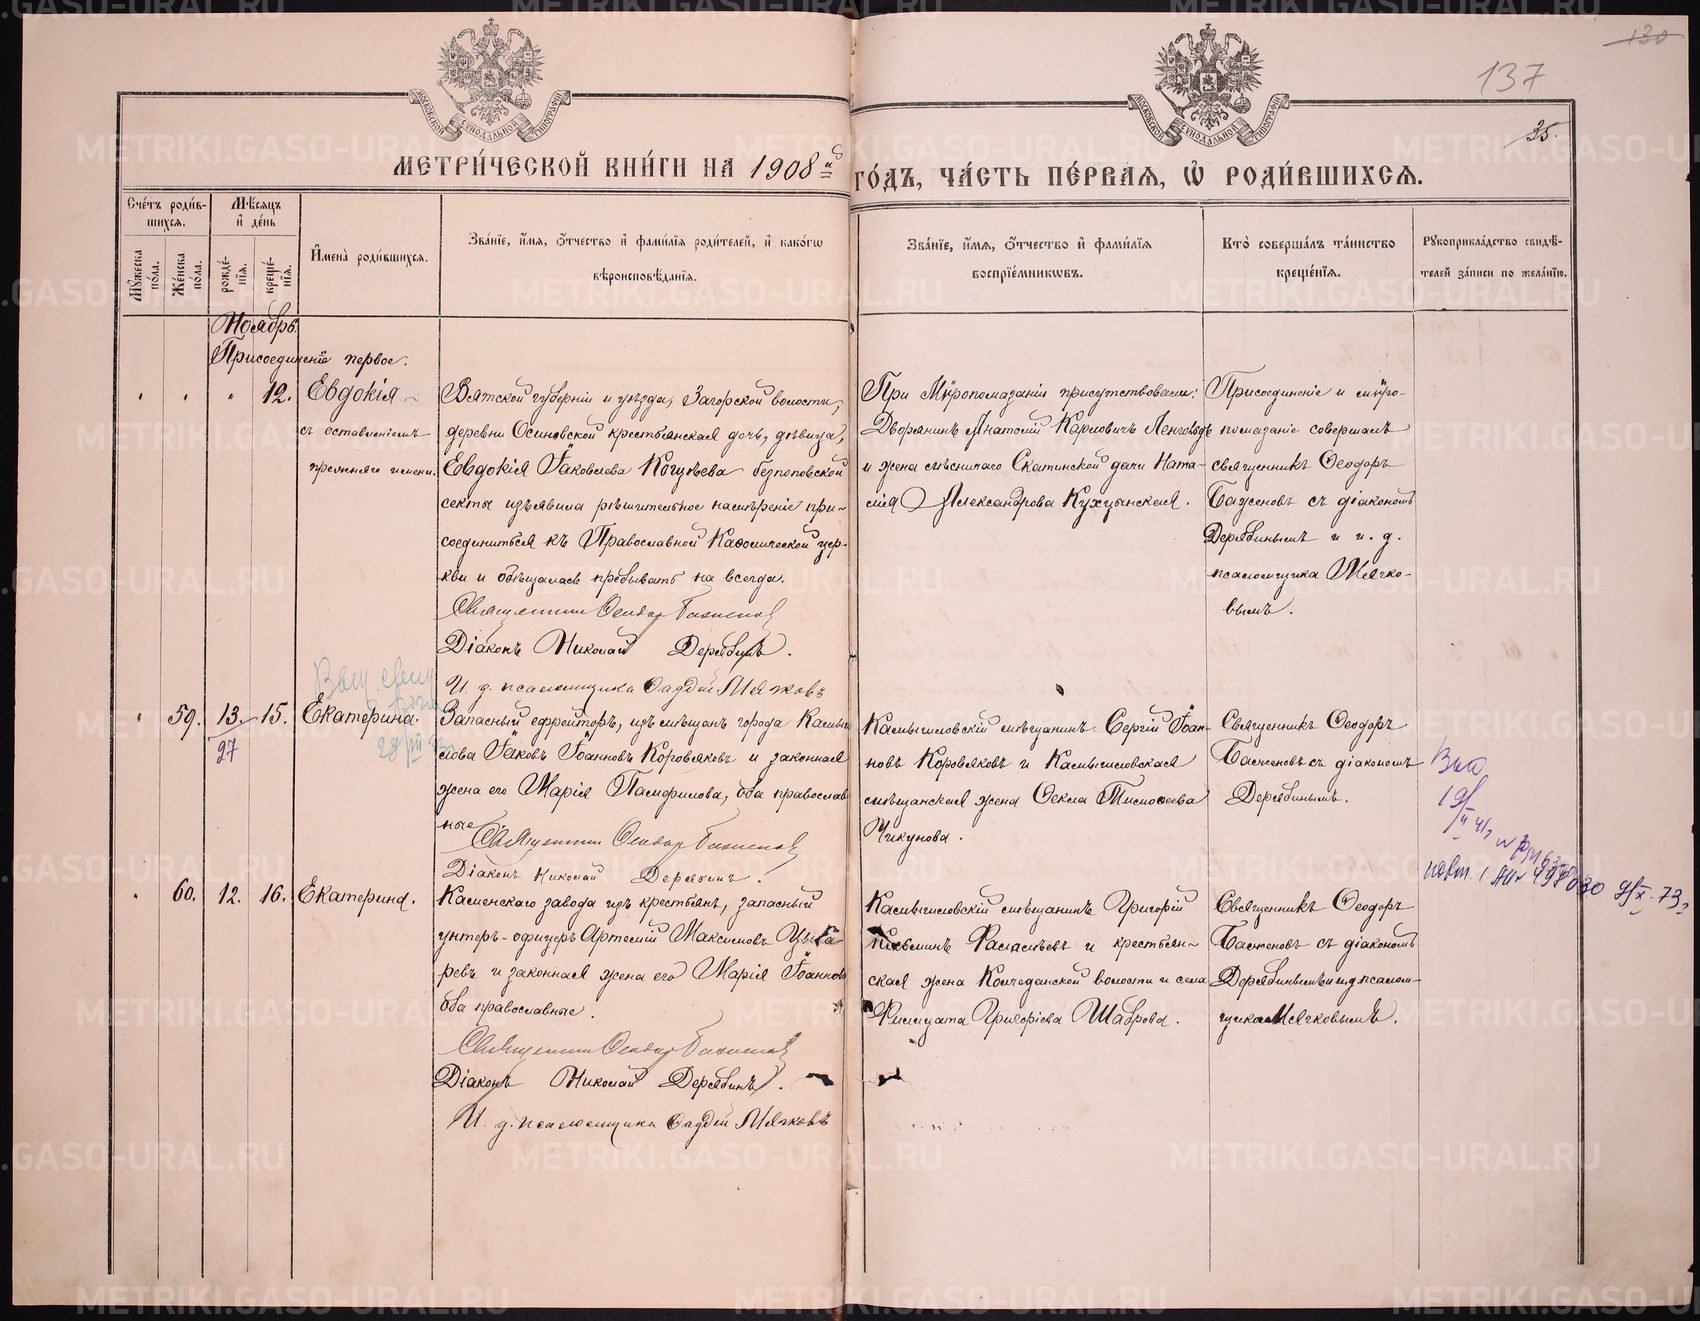 130
137
35.
МОСКОВСКОЙ СѴНОДАЛЬНОЙ ТИПОГРАФІИ
МОСКОВСКОЙ СѴНОДАЛЬНОЙ ТИПОГРАФІИ
МЕТРИ́ЧЕСКОЙ КНИ́ГИ НА 1908й ГО́ДЪ, ЧА́СТЬ ПЕ́РВАѦ, Ѡ҆ РОДИ́ВШИХСѦ.
Сче́тъ роди́вшихсѧ.
Мꙋ́жеска по́ла.
Же́нска по́ла.
Мѣ́сѧцъ и҆ де́нь
рожде́нїѧ.
креще́нїѧ.
И҆мена̀ роди́вшихсѧ.
Зва́нїе, и҆́мѧ, ѻ҆́тчество и҆ фами́лїѧ роди́телей, и҆ како́гѡ
вѣроисповѣ́данїѧ.
Зва́нїе, и҆́мѧ, ѻ҆́тчество и҆ фами́лїѧ
воспрїе́мникѡвъ.
Кто̀ соверша́лъ та́инство
креще́нїѧ.
Рꙋкоприкла́дство свидѣ́-
телей за́писи по жела́нїю.
Ноябрь.
Присоединеніе первое.
12.
Евдокія
съ оставленіемъ
прежняго имени.
Вятской губерніи и уѣзда, Загорской волости,
деревни Осиновской крестьянская дочь, дѣвица,
Евдокія Іаковлева безпоповской
секты изъявила рѣшительное намѣреніе при-
соединиться къ Православной Каѳолической цер-
кви и обѣщалась пребывать на всегда.
Священникъ Ѳеодоръ Баженовъ
Діаконъ Николай Дерябинъ.
И. д. псаломщика Ѳаддей Мячковъ
При Мѵропомазаніи присутствовали:
Дворянинъ Анатолій Карловичъ
и жена лѣсничаго Скатинской дачи Ната-
лія Александрова Кухцынская.
Присоединеніе и мѵро-
помазаніе совершалъ
священникъ Ѳеодоръ
Баженовъ съ діакономъ
Дерябинымъ и и. д.
псаломщика Мячко-
вымъ.
59. 13. 15.
27
Екатерина.
Запасный ефрейторъ, изъ мѣщанъ города Камыш-
лова Іаковъ Іоанновъ Коровяковъ и законная
жена его Марія Памфилова, оба православ
ные
Священникъ Ѳеодоръ Баженовъ
Діаконъ Николай Дерябинъ.
Камышловскій мѣщанинъ Сергій Іоан-
новъ Коровяковъ и Камышловская
мѣщанская жена Ѳекла Тимоѳеева
Чикунова.
Священникъ Ѳеодоръ
Баженовъ съ діакономъ
Дерябинымъ.
60. 12. 16.
Екатерина.
Каменскаго завода изъ крестьянъ, запасный
унтеръ-офицеръ Артемій Максимовъ
ревъ и законная жена его Марія Іоаннова
оба православные.
Священникъ Ѳеодоръ Баженовъ
Діаконъ Николай Дерябинъ.
И. д. псаломщика Ѳаддей Мячковъ
Камышловскій мѣщанинъ Григорій
и крестьян-
ская жена Колчеданской волости и села
Григоріева Шаврова.
Священникъ Ѳеодоръ
Баженовъ съ діакономъ
Дерябинымъ и и. д. псалом-
щика Мячковымъ.
METRIKI.GASO-URAL.RU